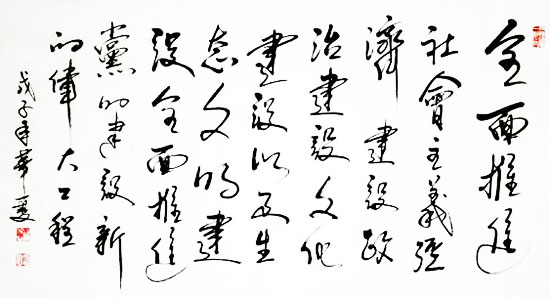 全面推進
社會主義經
濟建設政
治建設文化
建設以及生
态文明建
設全面推進
黨的建設新
的偉大工程
戊子年